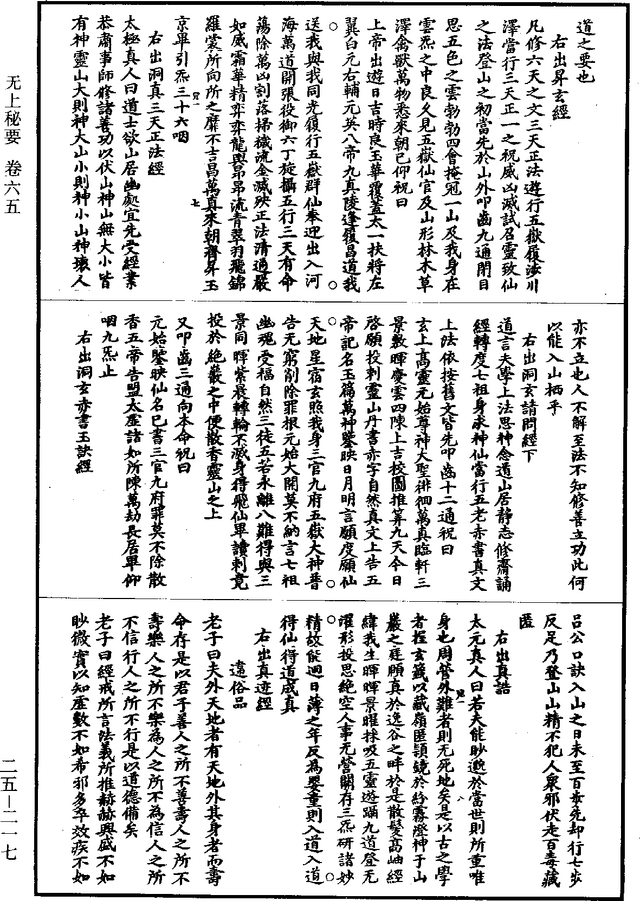 无上秘要 卷六五
二五—二一七
道之要也
右出昇玄經
凡修六天之文三天正法遊行五嶽履涉川
澤當行三天正一之祝威凶滅試召靈致仙
之法登山之初當先於山外叩齒九通閉目
思五色之雲勃勃四會掩冠一山及我身在
雲炁之中良久見五嶽仙官及山形林木草
澤禽獸萬物悉來朝已仰祝曰
上帝出遊日吉時良玉華覆蓋太一扶將左
翼白元右輔元英八帝九真陵逢履昌道我
送我與我同光履行五嶽群仙奉迎出入河
海萬道開張役御六丁旋攝五行三天有命
蕩除萬凶割落掃穢流金滅殃正法清通嚴
如威霜華精弈弈龍輿昂昂流青翠羽飛錦
羅裳所向所之靡不吉昌萬真來朝齊昇玉
京畢引炁三十六咽
右出洞真三天正法經
太極真人曰道士欲山居幽處宜先受經業
恭肅事師修諸善功以伏山神山無大小皆
有神靈山大則神大山小則神小山神壞人
亦不立也人不解至法不知修善立功此何
以能入山栖乎
右出洞玄請問經下
道言夫學上法思神念道山居静志修齋誦
經轉度七祖身求神仙當行五老赤書真文
上法依按舊文皆先叩齒十二通祝曰
玄上高靈元始尊神大聖徘徊萬真臨軒三
景敷暉慶雲四陳上吉校圖推筭九天今日
啓願投刺靈山丹書赤字自然真文上告五
帝記名玉篇萬神鑒映日月明言願度願仙
天地星宿玄照我身三官九府五嶽大神普
告无窮削除罪根元始大開莫不納言七祖
幽魂受福自然三徒五苦永離八難得與三
景同暉紫晨轉輪不滅身得飛仙畢讀刺竟
投於絶巖之中便散香靈山之上
又叩齒三通向本命祝曰
元始鑒映仙名已書三官九府罪莫不除散
香五帝告盟太虚諸如所陳萬劫長居畢仰
咽九炁止
右出洞玄赤書玉訣經
吕公口訣入山之日未至百步先却行七步
反足乃登山山精不犯人衆邪伏走百毒藏
匿
右出真誥
太元真人曰若夫能眇邈於當世則所重唯
身也周營外難者則无死地矣是以古之學
者握玄籤以藏嶺匿頴鏡於紛霧澄神于山
巖之庭願真於逸谷之畔於是散髮高岫經
緯我生暉暉景曜採吸五靈遊躡九道登无
濯形投思絶空人事无營關存三炁研諸妙
精故能迴日薄之年反為嬰童則入道入道
得仙得道成真
右出真迹經
違俗品
老子曰夫外天地者有天地外其身者而壽
命存是以君子善人之所不善壽人之所不
壽樂人之所不樂為人之所不為信人之所
不信行人之所不行是以道德備矣
老子曰經戒所言法義所推赫赫興盛不如
眇微實以知虚數不如希邪多卒效疾不如